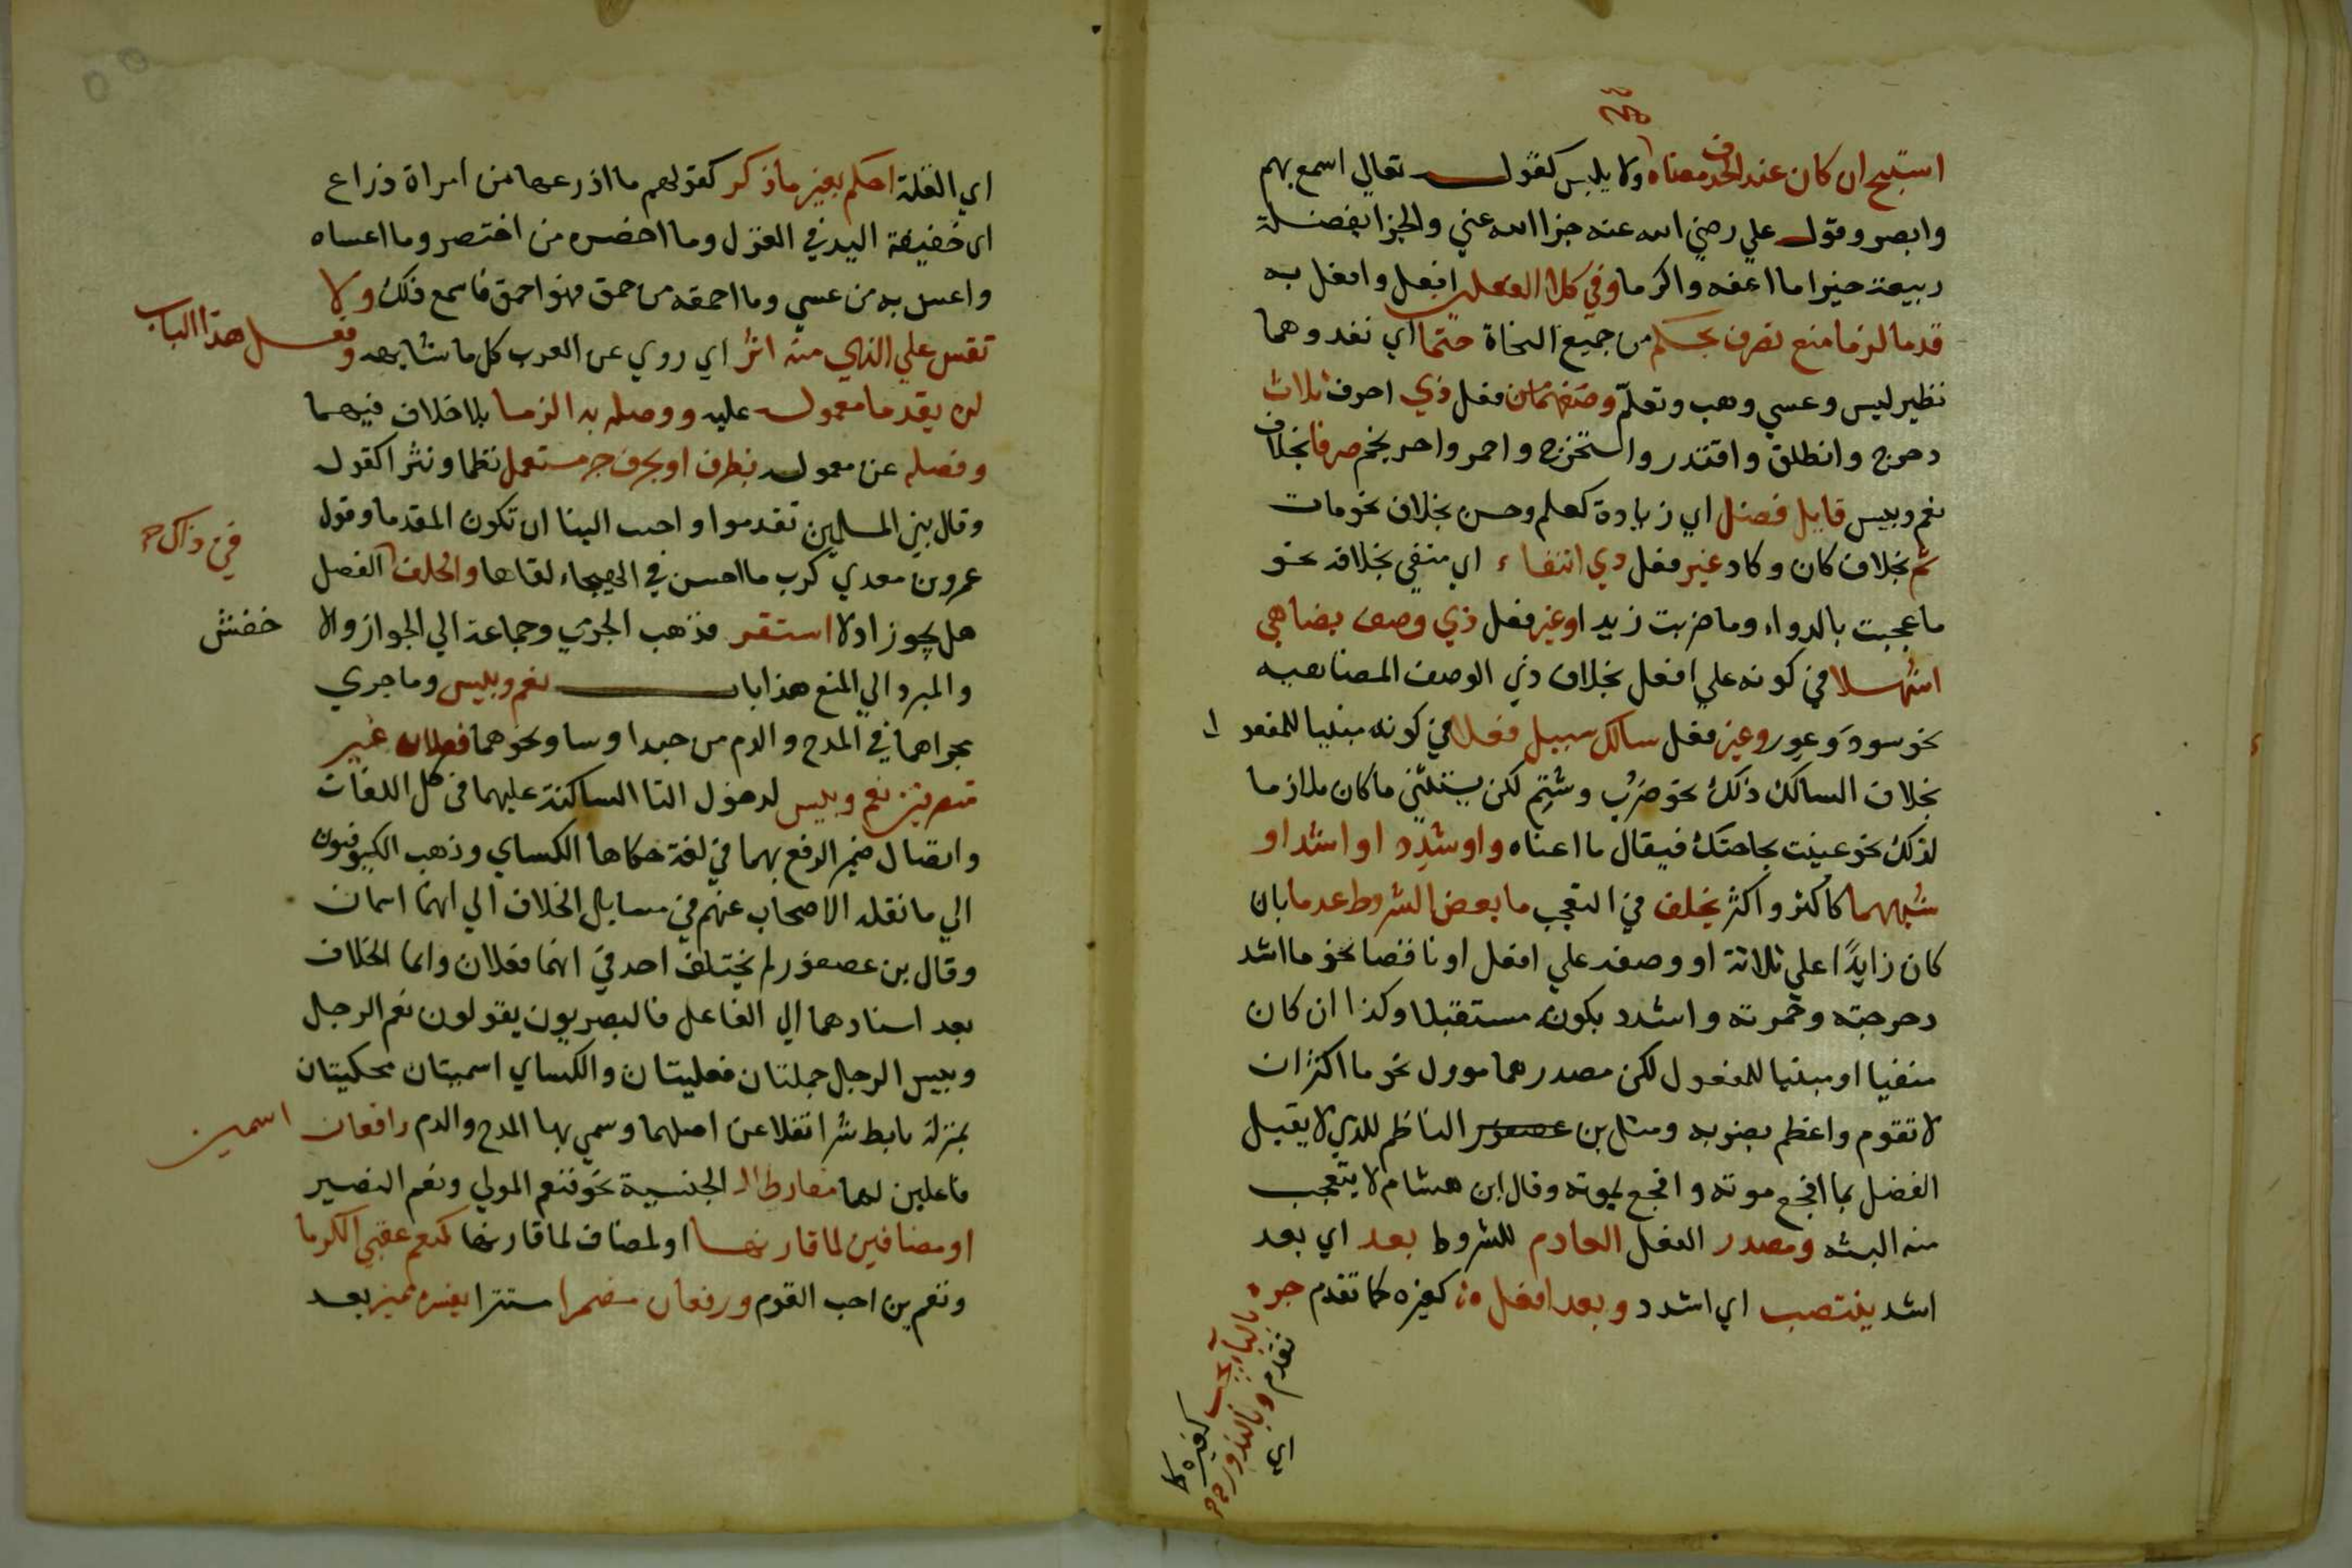 استبح ان كان عند الحذف معناه ولا يلبس كقوله تعالي اسمع بهم
وابصر وقول علي رضي الله عنه جزا الله عني والجزا بفضله
ربيعة خيرا ما اعفه واكرما وفي كلا الفعلين افعل وافعل به
قدما لزما منع تصرف بحكم من جميع النحاة حتما اي نفد وهما
نظير ليس وعسي وهب وتعلّم وصغهما من فعل ذي احرف ثلاث
دحرج وانطلق واقتدر واستخرج واحمر واحر نجم صرفا بخلاف
نعم وبيس قابل فضل اي زيادة كعلم وحسن بخلاف نحو مات
تم بخلاف كان وكاد غير فعل ذي انتفاء اي منفي بخلافه نحو
ما عجبت بالدواء وما ضربت زيدا وغير فعل ذي وصف يضاهي
اشهلا في كونه علي افعل بخلاف ذي الوصف المضاهيه
نحو سود وعور وغير فعل سالك سبيل فعلا في كونه مبنيا للمفعو ل
بخلاف السالك ذلك نحو ضرب وشتم لكن يستثني ما كان ملازما
لذلك نحو عنيت بحاجتك فيقال ما اعناه واوشدد او اشد او
شبههما كاكثر واكثر يخلف في التعجب ما بعض الشروط عدما بان
كان زايدًا علي ثلاثة او وصفه علي افعل او ناقصا نحو ما اشد
دحرجته وحمرته واشدد بكونه مستقبلا وكذا ان كان
منفيا او مبنيا للمفعول لكن مصدرهما موول نحو ما اكثر ان
لا تقوم واعظم بضربه ومثل بن عصفور الناظم للذي لا يقبل
الفضل بما افجع موته وافجع بموته وقال ابن هشام لا يتعجب
منه البته ومصدر الفعل العادم للشروط بعد اي بعد
اشد ينتصب اي اشدد وبعد افعل كغيره كما تقدم جره
بالبا يجب
كغيره كما
تقدم وبالندور
اي
اي الغلة احكم بغير ما ذكر كقولهم ما اذرعها من امراة ذراع
اي خفيفة اليد في الغزل وما اخصره من اختصر وما اعساه
واعس به من عسي وما احمقه من حمق فهو احمق فاسمع ذلك ولا
تقس علي الذي منه اثر اي روي عن العرب كل ما شابهه وفعل هذا الباب
لن يقدما معموله عليه ووصله به الزما بلا خلاف فيهما
وفصله عن معموله بظرف او بحرف جر مستعمل نظما ونثرا كقوله
وقال نبي المسلمين تقدموا واحبب الينا ان تكون المقدما وقول
عمرو بن معدي كرب ما احسن في الهيجاء لقاها والخلف في ذاك الفصل
هل يجوز او لا استقر فذهب الجرمي وجماعة الي الجواز والا خفش
والمبرد الي المنع هذا باب نعم وبيس وما جري
مجراهما في المدح والذم من حبذا وسا ونحوهما فعلان غير
متصرفين نعم وبيس لدخول التا الساكنة عليهما في كل اللغات
واتصال ضمير الرفع بهما في لغة حكاها الكساي وذهب الكوفيون
الي ما نقله الاصحاب عنهم في مسايل الخلاف الي انهما اسمان
وقال بن عصفور لم يختلف احد في انهما فعلان وانما الخلاف
بعد اسنادهما الي الفاعل فالبصريون يقولون نعم الرجل
وبيس الرجل جملتان فعليتان والكساي اسميتان محكيتان
بمنزلة تابط شرا نقلا عن اصلهما وسمي بها المدح والذم رافعان اسمين
فاعلين لهما مقارني ال الجنسية نحو فنعم المولي ونعم النصير
او مضافين لما قارنها او لمضاف لما قارنها كنعم عقبي الكرما
ونعم بن اخت القوم ورفعان مضمرا مستترا يفسره مميز بعد